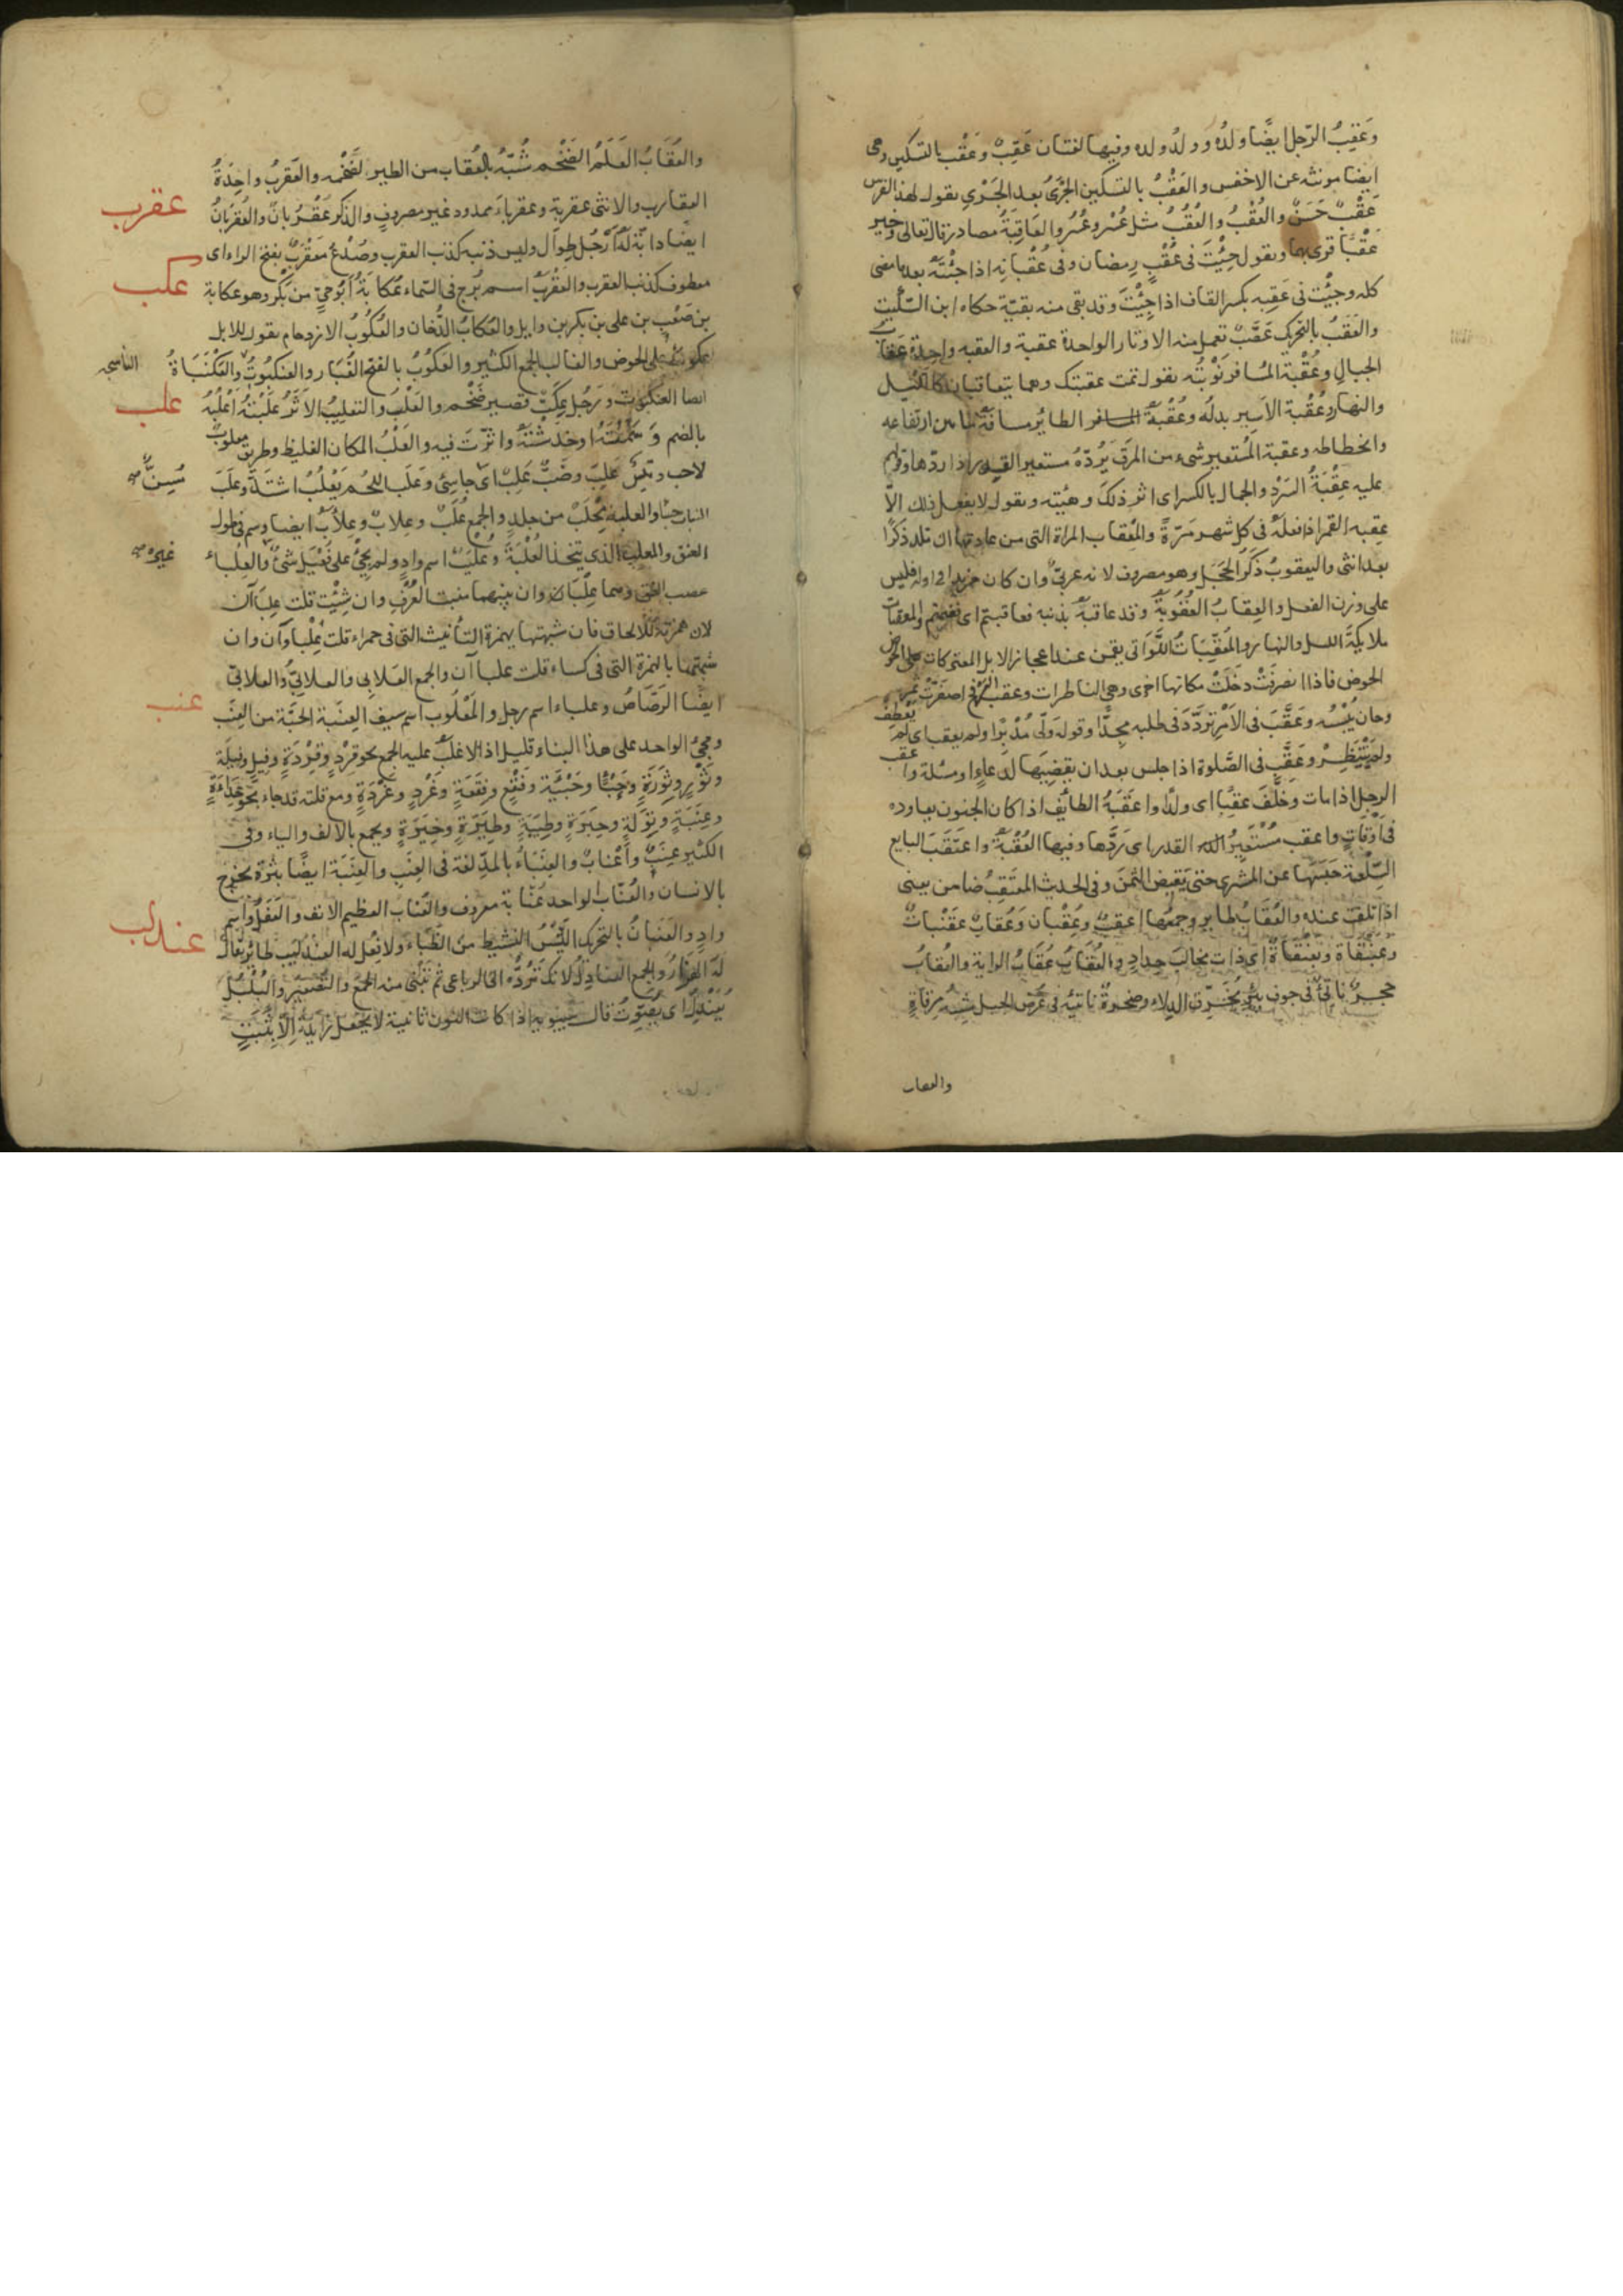 وَعَقِبُ الرّجل ايضًا ولدُه وولدُ ولده وفيها لغتان عَقِبٌ وعَقْب بالتسكين وهى
ايضا مونثه عن الاخفس والعَقْبُ بالتسكين الجَرْىُ بعد الجَرْىِ يقول لهذا الفرس
عَقْبٌ حَسَنٌ والعُقْبُ والعُقُبُ مثل عُسْر وعُسُر والعَاقِبَةُ مصادر قال تعالى وخير
عُقْبًا ترى بها ويقول جِئْتَ فى عُقْبِ رمضان وفى عُقْبَانِه اذا جِئْتَهُ بعد ما مضى
كله وجِئْت فى عَقِبِه بكسر القاف اذا جِئْتَ وقد بقى منه بقيّة حكاه ابن السّكّيت
والعَقَبُ بالتحريك عَصَبٌ تعمل منه الاوتار الواحدة عقبة والعقبه واحدة عقاب
الجبال وعُقْبة المُسافر نَوْبَتُه يقول تمت عقبتك وهما يتعاقبان كالليل
والنهار وعُقْبة الاَسير بدله وعُقْبَةُ الطاير مسافة ما بين ارتفاعه
وانحطاطه وعقبة المُستعير شىء من المرق يَرُدّهُ مستعير القدر اذا ردّها وقولهم
عليه عِقْبَةُ السَرْوِ والجمال بالكسر اى اثر ذلك وهيئته ويقول لا يفعل ذلك الاّ
عِقبه القمر اذا فعله فى كل شهر مَرّةً والمِعْقاب المراة التى من عادتها ان تلد ذكرًا
بعد انثى واليعقوبُ ذَكَرُ الحَجَل وهو مصروف لانه عربىّ وان كان مزيدا فى اوله فليس
على وزن الفعل والعِقابُ العُقُوبَةُ وقد عاقبهُ بذنبه فعاقبتم اى فغنمتم والمعقبات
ملايكةُ الليل والنهار والمُعَقِّبَاتُ اللَّوَاتى يقمن عند اعجاز الابل المعتركات على الحوض
الحوض فاذا انصرفَتْ دخَلَتْ مكانها اخرى وهى الناظرات وعقب العَرْفج اصفَرَّتْ ثمرته
وحان يُبْسُه وعَقَّبَ فى الاَمْرِ تَرَدَّدَ فى طلبه مجِدًّا وقوله ولّى مُدْبرًا ولم يعقب اى لم يَعْطِفْ
ولم يَنْتَظِرْ وعَقَّبَ فى الصَّلوة اذا جلس بعد ان يقضِيَها لدعاءٍ او مسئلة واعقب
الرجل اذا مات وخلّفَ عقِبًا اى ولدًا واعقَبَهُ الطائف اذا كان الجنون يعاوده
فى اَوْقاتٍ واعقب مُسْتَعِيرُ القدر اى رَدَّها وفيها العُقْبَةُ واعتَقَبَ البايع
السِّلْعة حَبَسَها عن المشترى حتى يَقبض الثمَنَ وفى الحديث المعتَقِبُ ضامن يعنى
اذا تلف عنده والعُقَابُ طاير وجمعُها اعقبٌ وعِقْبان وعُقابٌ عقَنْباتٌ
وعَبَنْقاة وبَعَنْقَاةٌ اى ذات مخالبَ حدادٍ والعُقَابُ عُقَابُ الراية والعُقابُ
حجرٌ ناتئٌ فى جوف بئر يُخَرِّق الدلاء وصخرةٌ ناتِئه فى عرض الجبل شِبْه مِرْقاةٍ
والعقاب
والعُقَابُ العَلَمُ الضَخْم شُبّهَ بالعُقاب من الطير لضخمه والعَقربُ واحِدَةُ
عقرب
العقارب والانثى عقربة وعقرباءُ ممدود غير مصروفٍ والذكر عُقْرُبانٌ والعُقْرُبَانُ
ايضا دابّة لَهُ اَرْجُل طِوال وليس ذنبه كذنب العقرب وصُدْغ مُعَقْرَبٌ بفتح الراء اى
عكب
معطوف كذنب العقرب والعقْرَبُ اسم بُرْج فى السّماء عُكابَةُ اَبُو حىّ من بَكْر وهو عكابة
بن صَعْبِ بن على بن بكر بن وايل والعُكَابُ الدُّخان والعُكُوبُ الازدحام يقول للابل
عكوبٌ على الحوض والغالب الجمع الكثير والعَكُوبُ بالفتح الغُبَار والعنكبوتُ والعَكَنْبَاةُ الناسجه
علب
ايضا العنكبوت ورَجُل عِكَبّ قصير ضَخْم والعَلْبُ والتعليبُ الاَثَرُ عَلَبْتُهُ اَعْلُبُهُ
بالضم وسَمْتُهُ او خدَشْتَهُ واَثَّرْتَ فيه والعَلْبُ المكان الغليظ وطريق معلوبٌ
لاحب وتَيْسٌ عَلِبٌ وضَبٌّ عَلِبٌ اى جاسِئ وعَلَب اللحُم يَعْلُبُ اشتَدَّ وعَلَبَ مُسِنٌّ صح
النبات جَسَا والعلبة مِحْلَبٌ من جلدٍ والجمع عُلَبٌ وعِلابٌ وعِلاَبٌ ايضا وسم فى طول
العنق والمعلب الذى يتخذ العُلْبَةَ وعُلْيَبٌ اسم وادٍ ولم يَجِئُ على فُعْيَل شئٌ والعِلْباءُ غيره صح
عصب العنق وهما عِلْبَاان بينهما منبت العُرْفِ وان شِئْت قلت عِلْبَاآن
لان همزته للالحاق فان شبهتها بهمزة التأنيث التى فى حمراء قلت عِلْباوَان وان
شبهتها بالهمزة التى فى كساء قلت علباآن والجمع العَلابى والعلابىُّ والعلابىّ
عنب
ايضًا الرَصَاصُ وعلباء اسم رجل والمَعْلُوب اسم سيف العِنَبة الحبَّة من العِنَب
ومجىُ الواحد على هذا البناء قليل اذ الاغلبُ عليه الجمع نحو قِرْدٍ وقِرَدَةٍ وفيلٍ وفيلَة
وثَوْرٍ وثِوَرَةٍ وجَبْئًا وجَبْئَةٍ وفَقْعٍ وفِقَعَةٍ وغَرْدٍ وغِرَدَةٍ ومع قلته قد جاء نحو حِدَاءَةٍ
وعِنَبَةٍ وتِوَلَةٍ وحِبَرَةٍ وطِيَبَةٍ وطِيَرَةٍ وخِيَرَةٍ ويجمع بالالف والتاء وفى
الكثير عِنَبٌ واَعْنابٌ والعِنَبَاءُ بالمدّ لغة فى العِنَبِ والعِنَبَة ايضًا بَثرَة تخرج
بالانسان والعُنّابُ الواحد عُنّابة معروف والعُناب العظيم الانف والعَفَلُ واسم
عندلب
وادٍ والعَنَبَانُ بالتحريك التَّيْسُ النشيط من الظِّبَاء ولا فِعْل له العَنْدَليب طائر يقال
لَهُ الهَزَارُ والجمع العنادلُ لانك تَرُدُّه الى الرباعى ثم تَبْنى منه الجمع والتصغير والبُلْبُل
يُعَنْدِلُ اى يصَوِّتُ قال سيبويه اذا كانت النون ثانية لا يجعل زايدة الا بثَبَتٍ